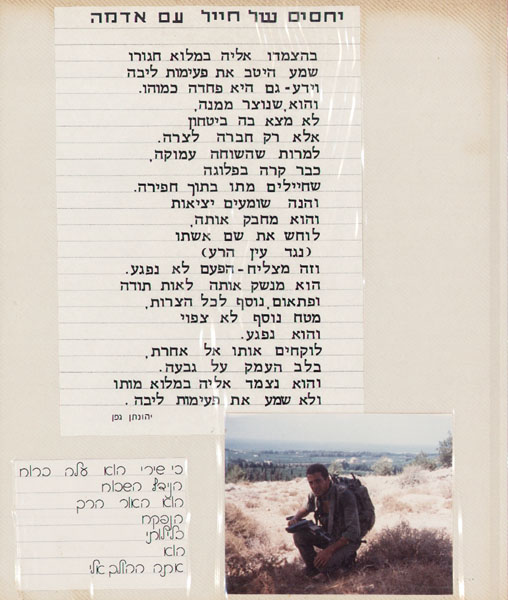 יחסים של חייל עם אדמה
בהצמדו אליה במלוא חגורו
שמע היטב את פעימות ליבה
וידע-גם היא פחדה כמוהו.
והוא,שנוצר ממנה,
לא מצא בה ביטחון
אלא רק חברה לצרה.
למרות שהשוחה עמוקה,
כבר קרה בפלוגה
שחיילים מתו בתוך חפירה.
והנה שומעים יציאות
והוא מחבק אותה,
לוחש את שם אשתו
(נגד עין הרע)
וזה מצליח-הפעם לא נפגע.
הוא מנשק אותה לאות תודה
ופתאום,נוסף לכל הצרות,
מטח נוסף לא צפוי
והוא נפגע.
לוקחים אותו אל אחרת,
בלב העמק על גבעה.
והוא נצמד אליה במלוא מותו
ולא שמע את פעימות ליבה.
יהונתן גפן
כי שירי הוא עלה ברוח
הנידף השכוח
הוא האור הרך
הנפקח
בלילותי
הוא
אתה ההולך אלי